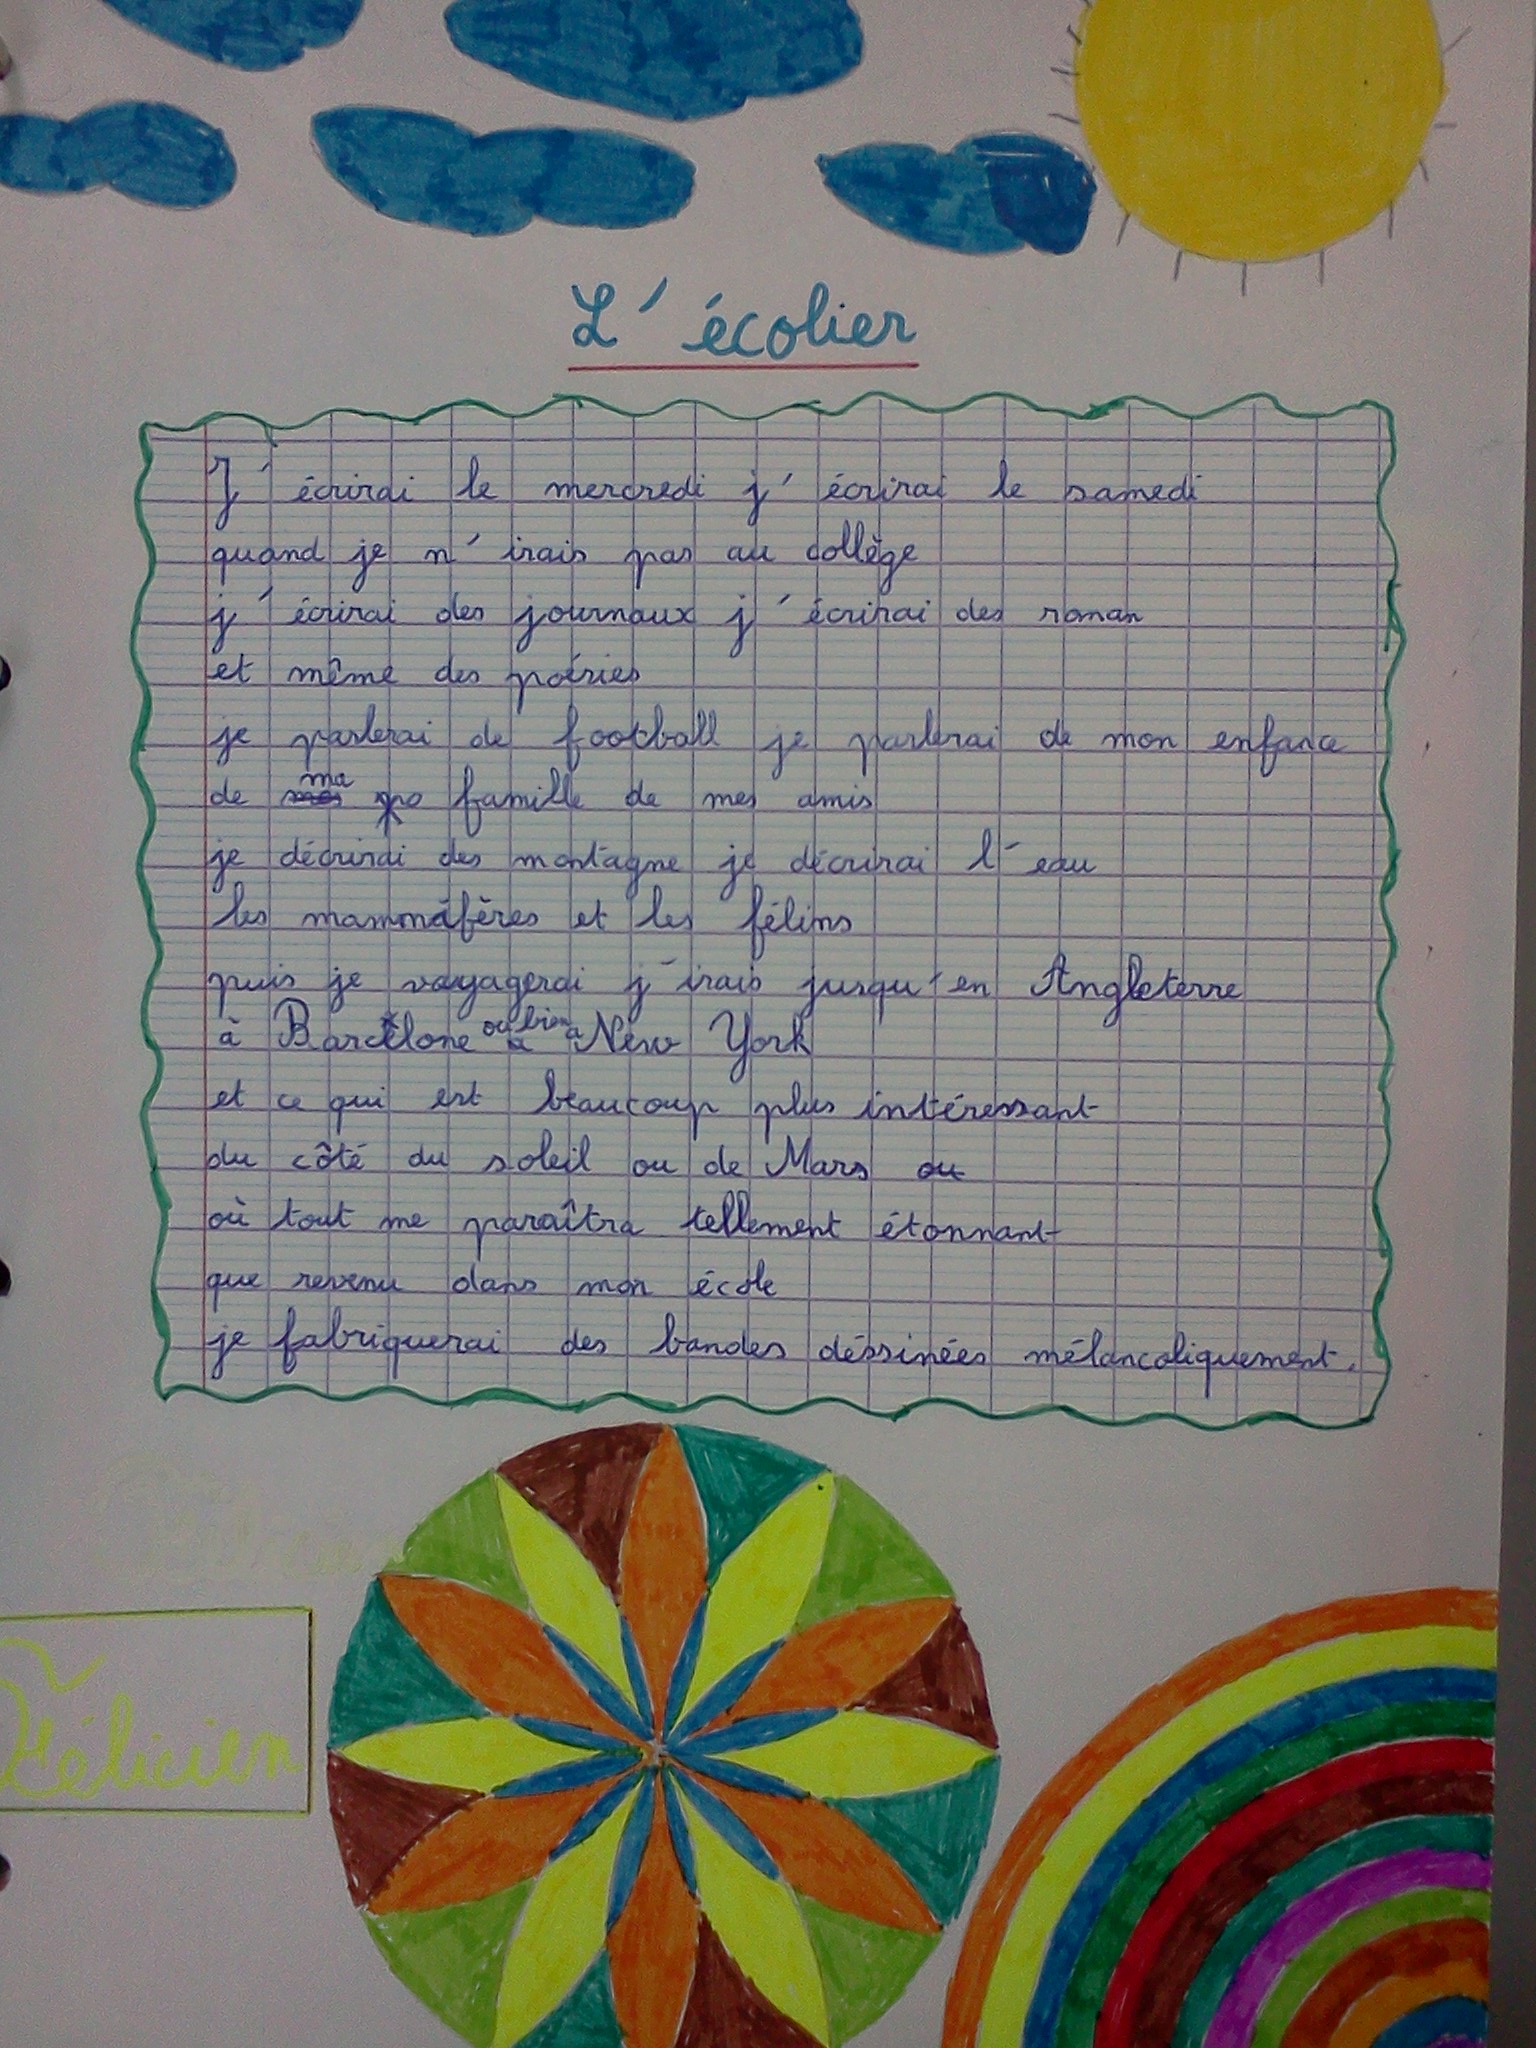 L'écolier
J'écrirai le mercredi j'écrirai le samedi
quand je n'irais pas au collège
j'écrirai des journaux j'écrirai des roman
et même des poésies
je parlerai de football je parlerai de mon enfance
de ma famille de mes amis
je décrirai des montagne je décrirai l'eau
les mammáfères et les félins
puis je voyagerai j'irais jusqu'en Angleterre
à Barcelone ou bien à New York
et ce qui est beaucoup plus intéressant
du côté du soleil ou de Mars ou
où tout me paraîtra tellement étonnant
que revenu dans mon école
je fabriquerai des bandes déssinées mélancoliquement.
Félicien